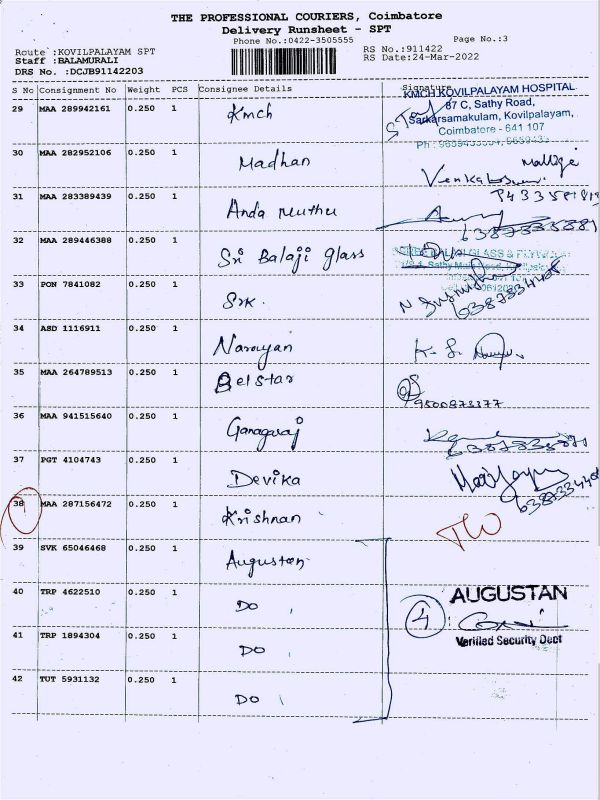 THE PROFESSIONAL COURIERS, Coimbatore
Delivery Runsheet - SPT
Phone No.:0422-3505555 Page No.:3
Route :KOVILPALAYAM SPT RS No.:911422
Staff :BALAMURALI RS Date:24-Mar-2022
DRS No. :DCJB91142203
S No Consignment No Weight PCS Consignee Details Signature
KMCH KOVILPALAYAM HOSPITAL
29 MAA 289942161 0.250 1 Kmch 87 C, Sathy Road,
Sarkarsamakulam, Kovilpalayam,
Coimbatore - 641 107
30 MAA 282952106 0.250 1 Madhan
31 MAA 283389439 0.250 1 Anda muthu
32 MAA 289446388 0.250 1 Sri Balaji glass
33 PON 7841082 0.250 1 Srk.
34 ASD 1116911 0.250 1 Narayan
35 MAA 264789513 0.250 1 Belstar
9500873377
36 MAA 941515640 0.250 1 Ganagaraj
37 PGT 4104743 0.250 1 Devika
38 MAA 287156472 0.250 1 Krishnan
39 SVK 65046468 0.250 1 Augustan
40 TRP 4622510 0.250 1 DO AUGUSTAN
4
41 TRP 1894304 0.250 1 DO Verified Security Dept
42 TUT 5931132 0.250 1 DO